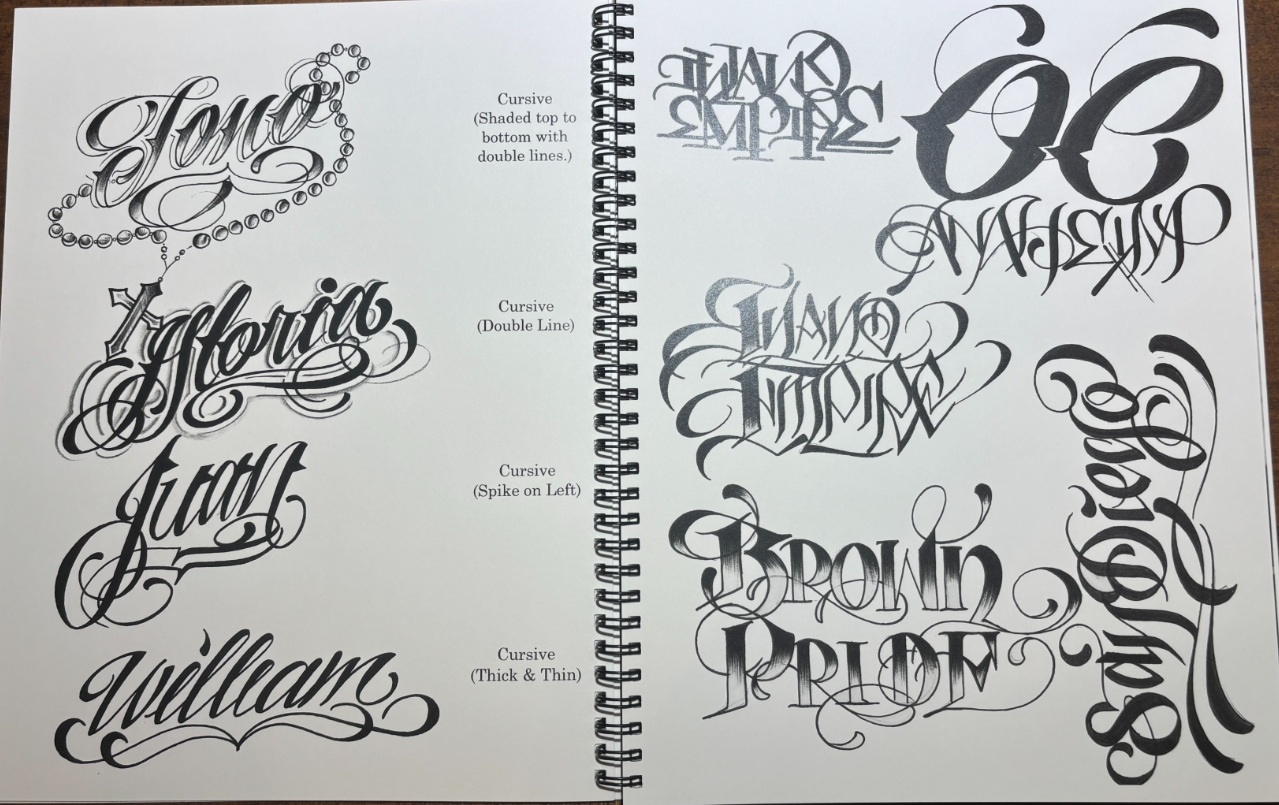 Cursive
(Shaded top to
bottom with
double lines.)
Astoria
Cursive
(Double Line)
Juan
Cursive
(Spike on Left)
William
Cursive
(Thick & Thin)
INLAND
EMPIRE
OC
ANAHEIM
INLAND
EMPIRE
San Diego
BROWN
PRIDE